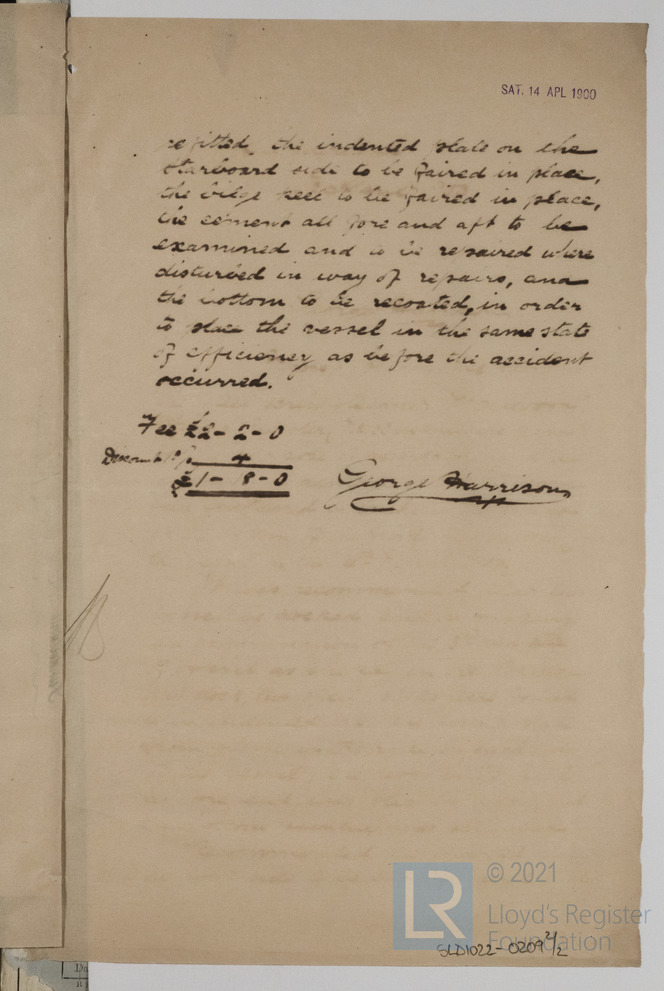 SAT. 14 APL 1900
refitted, the indented plate on the
starboard side to be faired in place,
the bilge keel to be faired in place,
the cement all fore and aft to be
examined and to be repaired where
disturbed in way of repairs, and
the bottom to be recoated, in order
to place the vessel in the same state
of efficiency as before the accident
occurred.
Fee £2-2-0
4
£1-8-0
George Harrison
LR
© 2021
Lloyd's Register
Foundation
SLD1022-0209 2/2